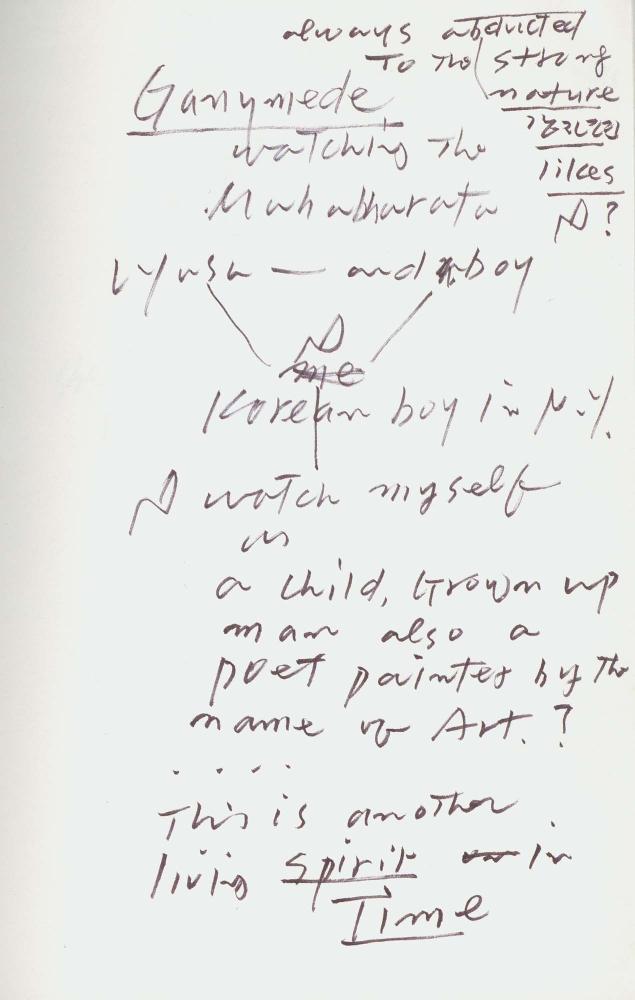 always abducted
To the strong
nature
likes
I?
Ganymede
watching The
Mahabharata
Vyasa — and boy
I
me
Korean boy in N.Y.
I watch myself
a child, Grown up
man also a
poet painter by The
name of Art.?
. . . .
This is another
living spirit in
Time